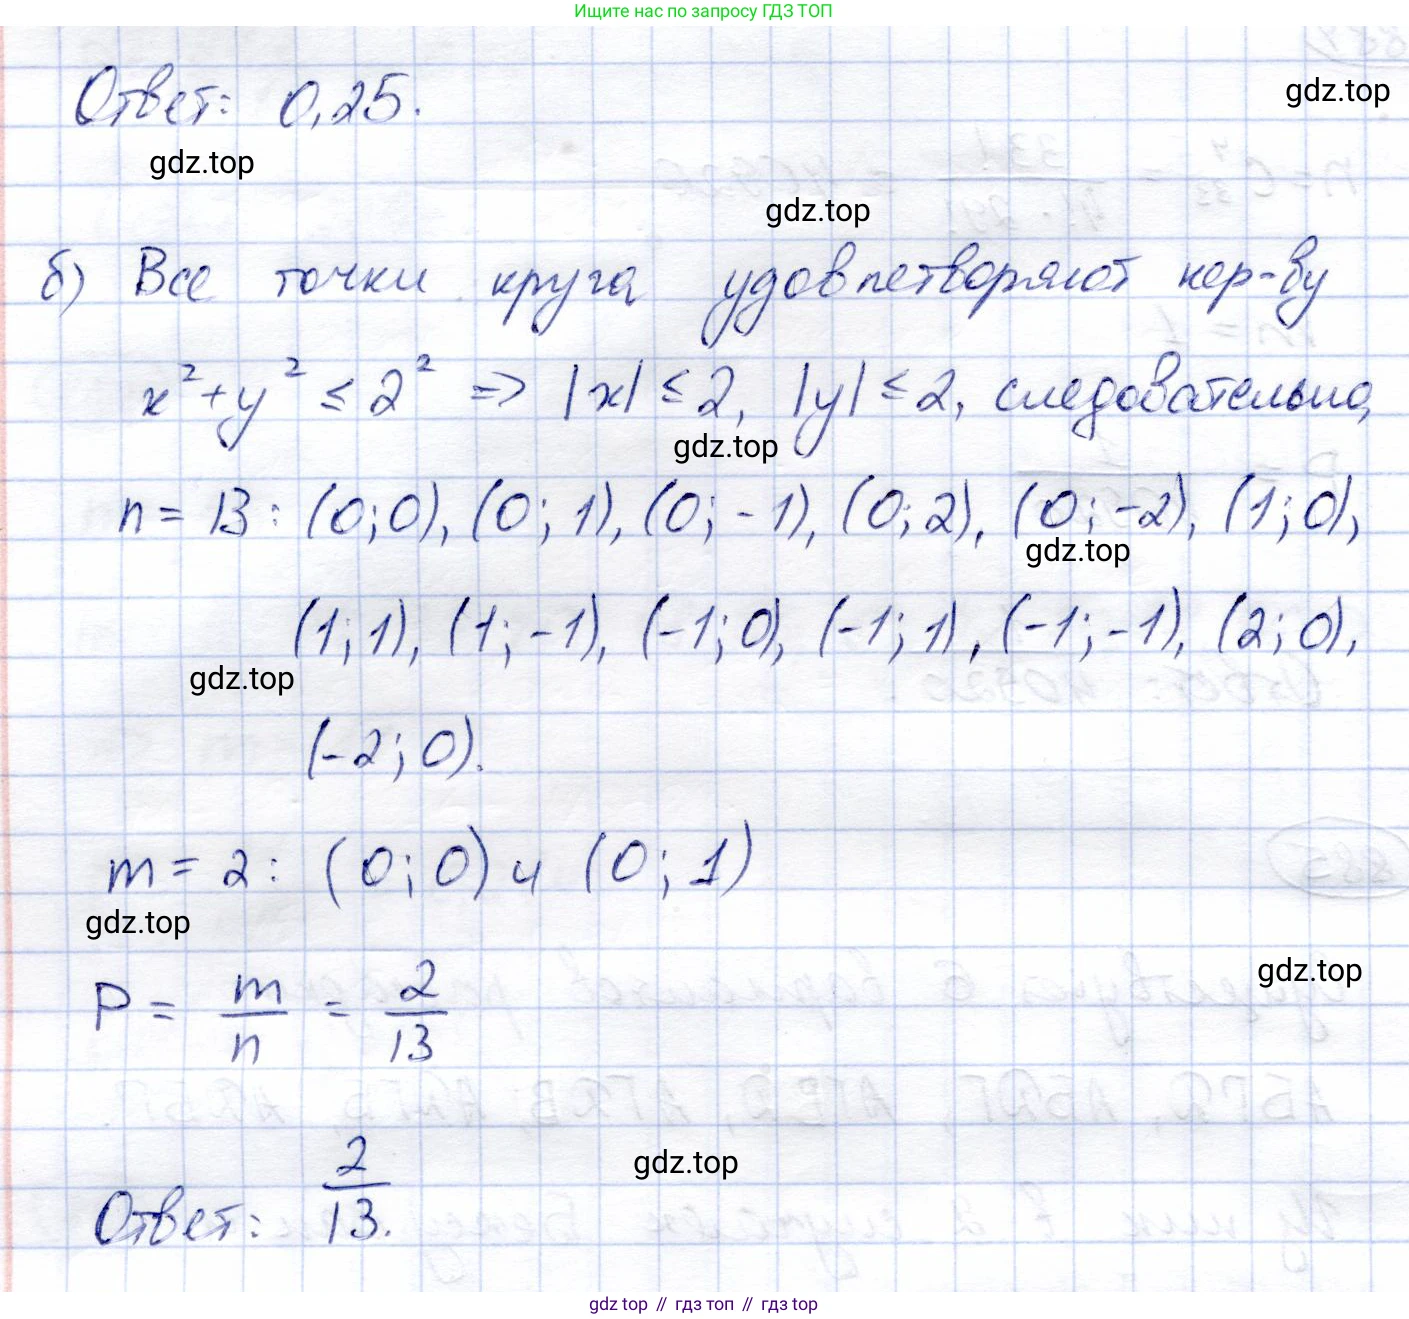 Ищите нас по запросу ГДЗ ТОП
Ответ: 0,25.
gdz.top
gdz.top
gdz.top
б) Все точки круга удовлетворяют нер-ву
x² + y² ≤ 2² => |x| ≤ 2, |y| ≤ 2, следовательно,
gdz.top
n = 13 : (0; 0), (0; 1), (0; -1), (0; 2), (0; -2), (1; 0),
gdz.top
(1; 1), (1; -1), (-1; 0), (-1; 1), (-1; -1), (2; 0),
gdz.top
(-2; 0).
m = 2 : (0; 0) и (0; 1)
gdz.top
gdz.top
P = m/n = 2/13
gdz.top
Ответ: 2/13.
gdz top // гдз топ // гдз top